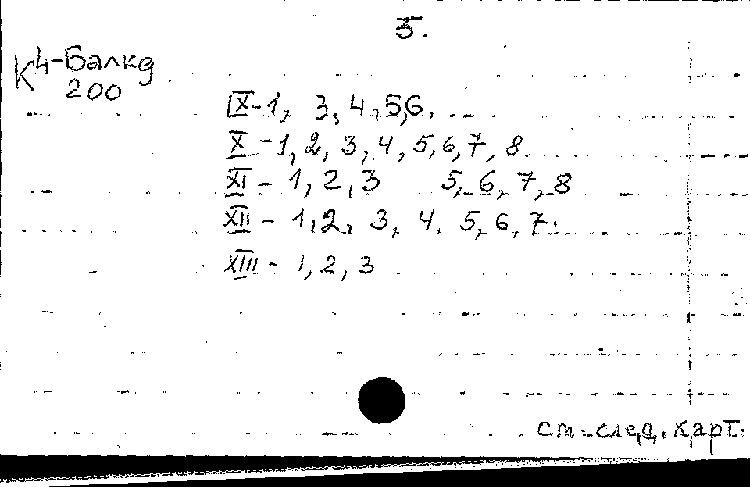 5.
К4-Балкд
200
IX-1, 3, 4, 5, 6.
X-1, 2, 3, 4, 5, 6, 7, 8
XI - 1, 2, 3 5, 6, 7, 8
XII - 1, 2, 3, 4, 5, 6, 7.
XIII - 1, 2, 3
см. след. карт.